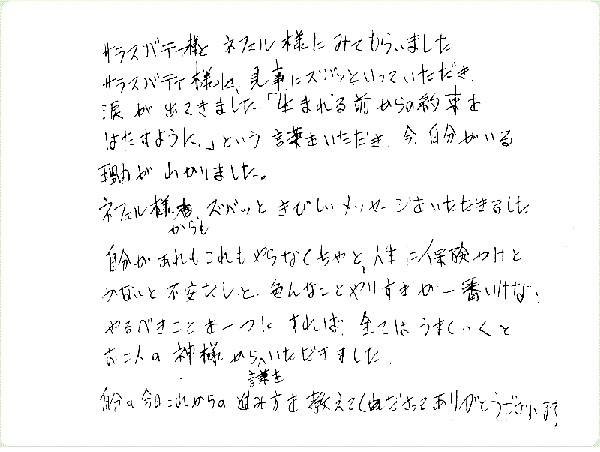 サラスバティー様と ネフェル様に みてもらいました
サラスバティ様には、見事にズバッといっていただき、
涙が出てきました「生まれる前からの約束を
はたすように。」という言葉をいただき、今、自分がいる
理由がわかりました。
ネフェル様からも ズバッと きびしいメッセージをいただきました
自分があれもこれもやらなくちゃと、人生に保険かけと
かないと不安だしと、色んなことやりすぎが一番いけない
やるべきことを一つにすれば、全てはうまくいくと
お二人の神様から、言葉をいただきました。
自分の今日これからの進み方を教えてくださってありがとうございます